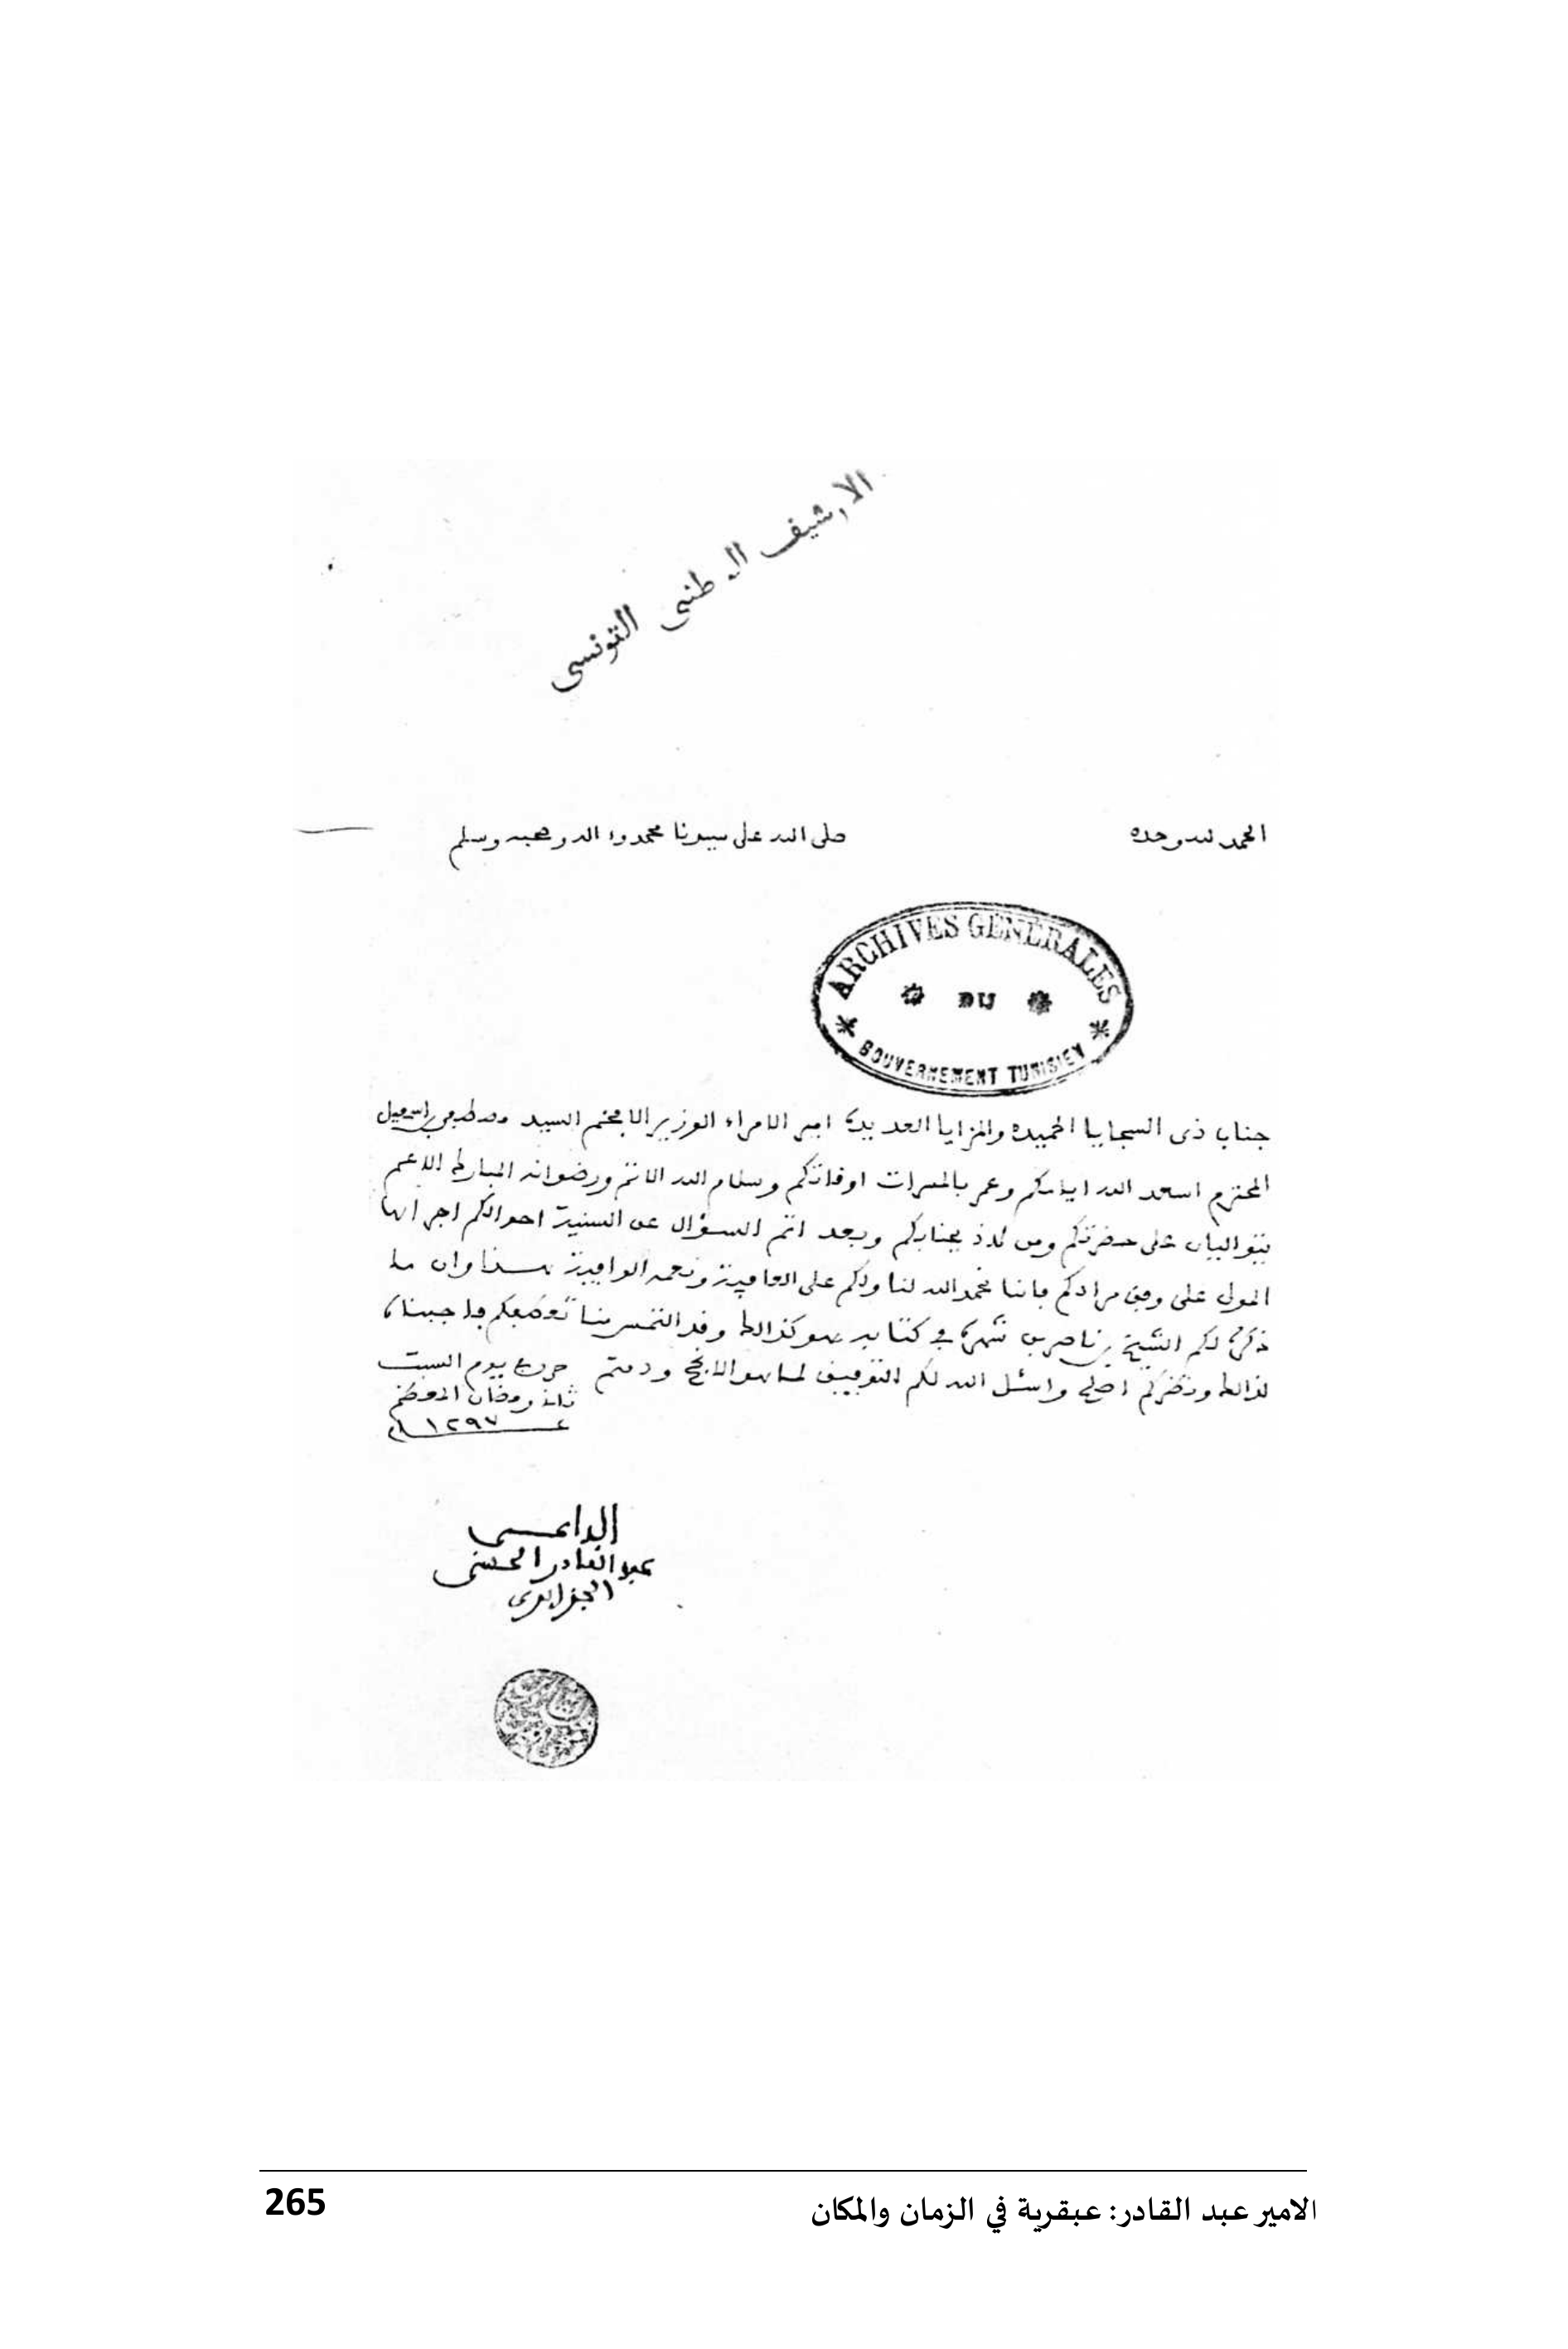 الارشيف الوطني التونسي
الحمد لله وحده صلى الله على سيدنا محمد واله وصحبه وسلم
ARCHIVES GENERALES
DU
GOUVERNEMENT TUNISIEN
جناب ذى السجايا الحميده والمزايا العديدة امير الامراء الوزير الافخم السيد مصطفى بن اسمعيل
المحترم اسعد الله ايامكم وعمر بالمسرات اوقاتكم وسلام الله الاتم ورضوانه المبارك الاعم
يتواليان على حضرتكم ومن لاذ بجنابكم وبعد اتم السؤال عن السنية احوالكم اجراها
المولى على وفق مرادكم فاننا نحمد الله لنا ولكم على العافية ونعمه الوافية هذا وان ما
ذكره لكم الشيخ بن ناصر بن شهرة في كتابه هو كذالك وقد التمس منا تعريفكم فاجبناه
لذالك ونظركم اصلح واسئل الله لكم التوفيق لما هو الانجح ودمتم حرر يوم السبت
رمضان المعظم
١٢٩٧
الداعي
عبد القادر الحسني
الجزائري
الامير عبد القادر: عبقرية في الزمان والمكان 265